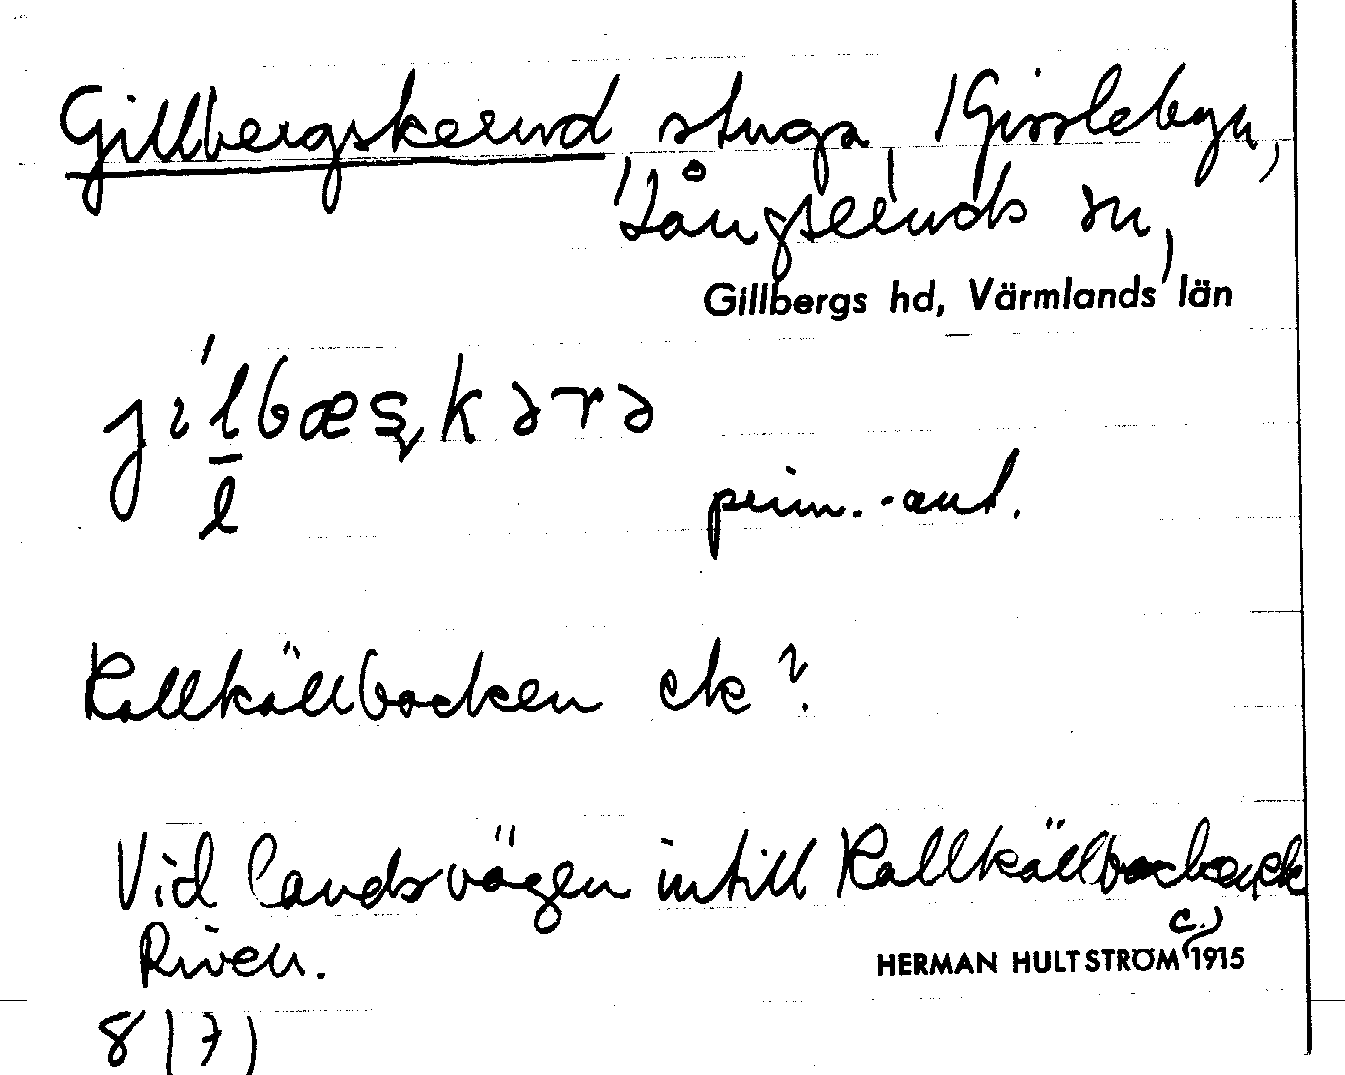 Gillbergskerud, stuga, 1 Gisslebyn,
Långseruds sn,
Gillbergs hd, Värmlands län
jilbæʂkərə
l
prim.-ant.
Kallkällbacken ek?
Vid landsvägen intill Kallkällbacken, ek
Riven.
HERMAN HULTSTRÖM c.) 1915
8 (7)